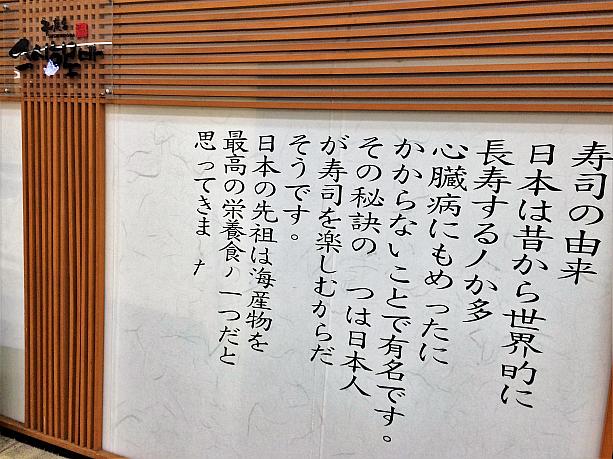 寿司の由来
日本は昔から世界的に
長寿する人か多
心臓病にもめったに
かからないことで有名です。
その秘訣の つは日本人
が寿司を楽しむからだ
そうです。
日本の先祖は海産物を
最高の栄養食 一つだと
思ってきま